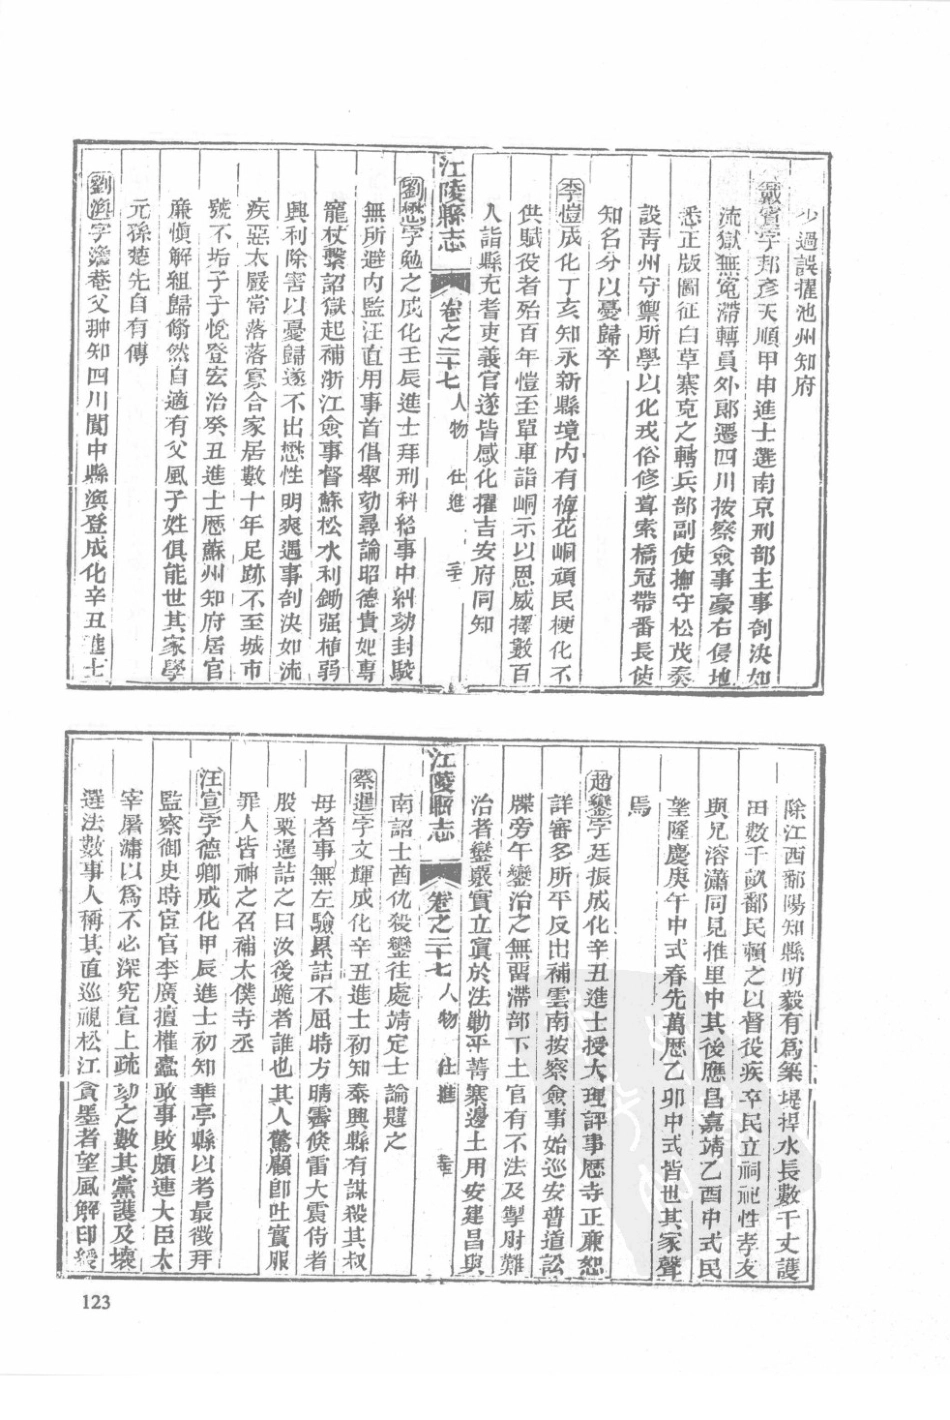 少過誤擢池州知府
戴賓字邦彥天順甲申進士選南京刑部主事剖決如
流獄無寃滯轉員外郞遷四川按察僉事豪右侵地
悉正版圖征白草寨克之轉兵部副使撫守松茂奏
設青州守禦所學以化戎俗修葺索橋冠帶番長使
知名分以憂歸卒
李愷成化丁亥知永新縣境內有梅花峒頑民梗化不
供賦役者殆百年愷至單車詣峒示以恩威擇數百
人詣縣充耆吏義官遂皆感化擢吉安府同知
江陵縣志 卷之二十七 人物 仕進
劉懋字勉之成化壬辰進士拜刑科給事中糾劾封駁
無所避內監汪直用事首倡舉劾尋論昭德貴妃專
寵杖繫詔獄起補浙江僉事督蘇松水利鋤强植弱
興利除害以憂歸遂不出懋性明爽遇事剖決如流
疾惡太嚴常落落寡合家居數十年足跡不至城市
號不垢子子悅登宏治癸丑進士歷蘇州知府居官
廉愼解組歸翛然自適有父風子姓俱能世其家學
元孫楚先自有傳
劉渶字澹菴父翀知四川閬中縣渶登成化辛丑進士
除江西鄱陽知縣明毅有爲築堤捍水長數千丈護
田數千畝鄱民賴之以督役疾卒民立祠祀性孝友
與兄溶瀟同見推里中其後應昌嘉靖乙酉中式民
望隆慶庚午中式春先萬歷乙卯中式皆世其家聲
焉
趙鑾字廷振成化辛丑進士授大理評事歷寺正廉恕
詳審多所平反出補雲南按察僉事始巡安普道訟
牒旁午鑾治之無畱滯部下土官有不法及掣肘難
治者鑾嚴實立寘於法勦平菁寨邊土用安建昌與
江陵縣志 卷之二十七 人物 仕進
南詔士酋仇殺鑾往處靖定士論韙之
蔡暹字文輝成化辛丑進士初知泰興縣有謀殺其叔
母者事無左驗累詰不屈時方晴霽倐雷大震侍者
股栗暹詰之曰汝後跪者誰也其人驚顧卽吐實服
罪人皆神之召補太僕寺丞
汪宣字德卿成化甲辰進士初知華亭縣以考最徵拜
監察御史時宦官李廣擅權蠹政事敗頗連大臣太
宰屠滽以爲不必深究宣上疏劾之數其黨護及壞
選法數事人稱其直巡視松江貪墨者望風解印綬
123